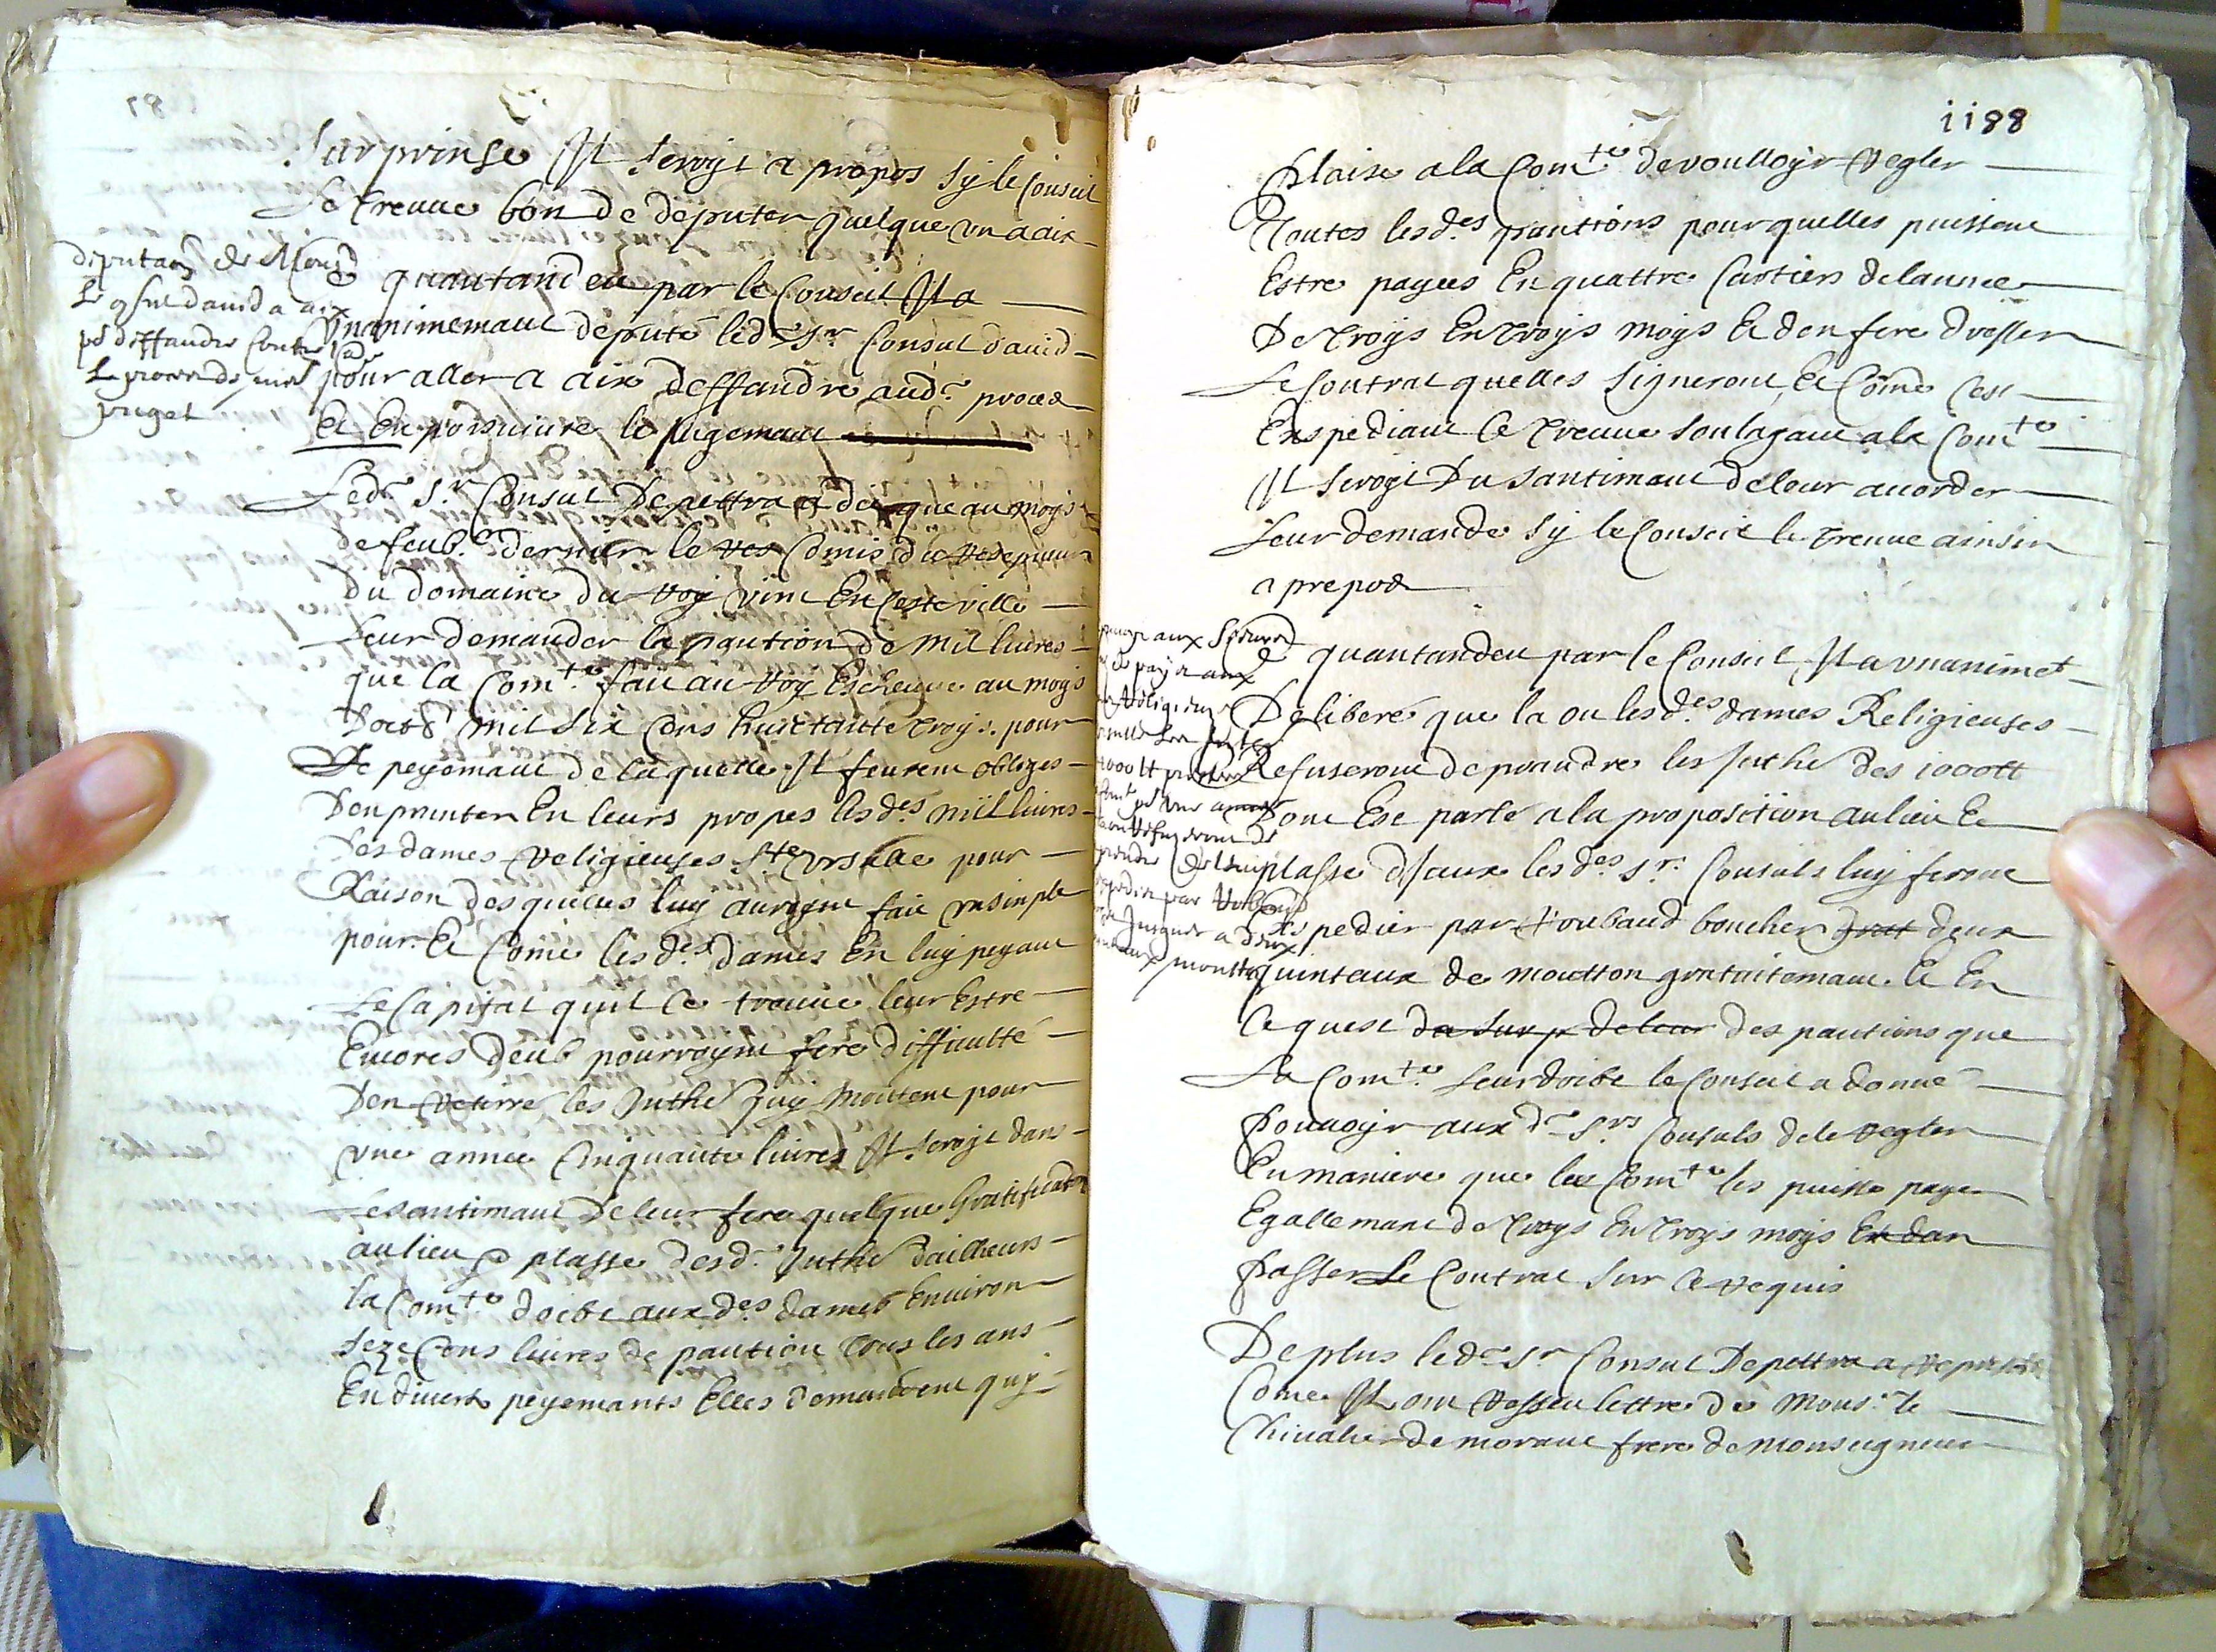 surprinse Il seroyt a propos sy le Conseil
Le treuue bon de deputer quelque un a aix
deputaon de Monsr
quantandeu par le Conseil Il a
Le Consul dauid a aix
Unanimemant deputé ledt sr Consul dauid
pr deffandre Contre
pour aller a aix deffandre audt proces
Le proces de
puget
Et En poirsuiure le Jugemant
Ledt sr Consul Depettra a dit que au moys
de feub.e dernier le Comis du
Du domaine du Roy vint En Ceste ville
Leur demander la pantion de mil liures
que la Comte fait au Roy Escheue au moys
Doctbe mil six Cens huictante troys pour
Le peyemant de laquelle Il feurent obliges
Denprunter En leurs propes les des mil liures
Des dames religieuses Ste Ursulle pour
Raison desquelles luy auroynt fait un sinple
pour. Et Come les des dames En luy peyant
Le Capital quil Ce treuue leur Estre
Encores deub pourroynt fere difficulté
Den retirer les Inthes quy montent pour
une année Cinquante liures Il seroyt dans
Le santimant de leur fere quelque Gratification
au lieu & plasse desd. Inthes dailheurs
la Comte doibt aux des dames Enuiron
seze Cens liures de pantion tous les ans
En diuers peyemants Elles demandent quy
1188
plaise a la Comte de voulloyr regler
Toutes les des pantions pour quelles puissent
Estre payees En quattre Cartiers de lannee
De troys En troys moys Et den fere dresser
Le Contrat quelles signeront, Et Come Cest
Enspediant Ce treuue soulagant a la Comte
Il seroyt Du santimant de leur acorder
Leur demande sy le Conseil le treuue ainsin
a prepos
quantandeu par le Conseil, Il a unanimet
Deliberé que la ou les des dames Religieuses
Refuseront de prandre les Inthes des 1000 tt
Dont Est parlé a la proposition au lieu Et
plasse diceux les des srs Consuls luy feront
Expedier par Roubaud boucher deux
quinteaux de moutton gratuitemant. Et En
Ce quest da sur p de leur des pantions que
La Comte leur doibt le Conseil a donné
pouuoyr aux ds srs Consuls de le regler
En maniere que la Comte les puisse payer
Egallemant de troys En troys moys Et dan
passer Le Contrat sur Ce requis
De plus ledt sr Consul Depettra a represanté
Come Il ont Resseu lettre de Monsr le
Chiualier de morant frere de monseigneur